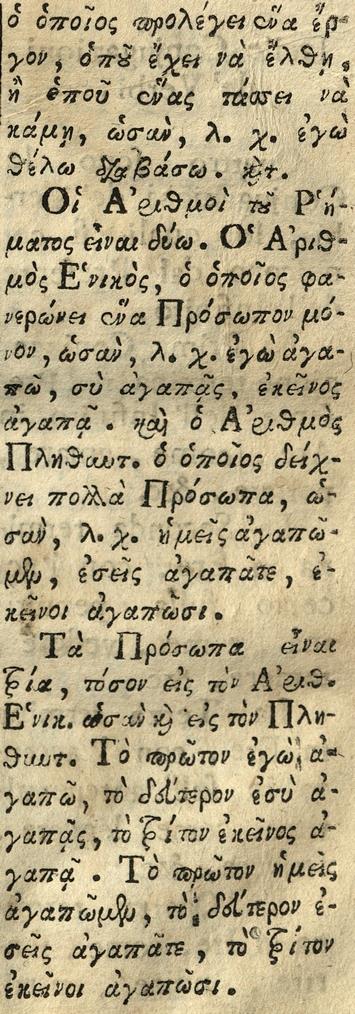 ὁ ὁποῖος προλέγει ἕνα ἔρ-
γον, ὁποῦ ἔχει νὰ ἔλθῃ,
ἢ ὁποῦ ἕνας τάσσει νὰ
κάμῃ, ὡσὰν, λ. χ. ἐγὼ
θέλω διαβάσω. κτ.
Οἱ Ἀριθμοὶ τοῦ Ῥή-
ματος εἶναι δύω. Ὁ Ἀριθ-
μὸς Ἑνικὸς, ὁ ὁποῖος φα-
νερώνει ἕνα Πρόσωπον μό-
νον, ὡσὰν, λ. χ. ἐγὼ ἀγα-
πῶ, σὺ ἀγαπᾷς, ἐκεῖνος
ἀγαπᾷ. καὶ ὁ Ἀριθμὸς
Πληθυντ. ὁ ὁποῖος δείχ-
νει πολλὰ Πρόσωπα, ὡ-
σὰν, λ. χ. ἡμεῖς ἀγαπῶ-
μεν, ἐσεῖς ἀγαπᾶτε, ἐ-
κεῖνοι ἀγαπῶσι.
Τὰ Πρόσωπα εἶναι
τρία, τόσον εἰς τὸν Ἀριθ.
Ἑνικ. ὡσὰν καὶ εἰς τὸν Πλη-
θυντ. Τὸ πρῶτον ἐγὼ ἀ-
γαπῶ, τὸ δεύτερον ἐσὺ ἀ-
γαπᾷς, τὸ τρίτον ἐκεῖνος ἀ-
γαπᾷ. Τὸ πρῶτον ἡμεῖς
ἀγαπῶμεν, τὸ δεύτερον ἐ-
σεῖς ἀγαπᾶτε, τὸ τρίτον
ἐκεῖνοι ἀγαπῶσι.